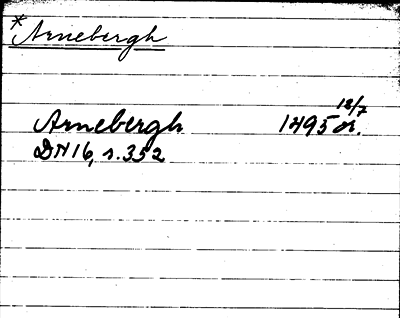 * Arnebergh
Arnebergh 1495 18/7 or.
DN 16, s. 352